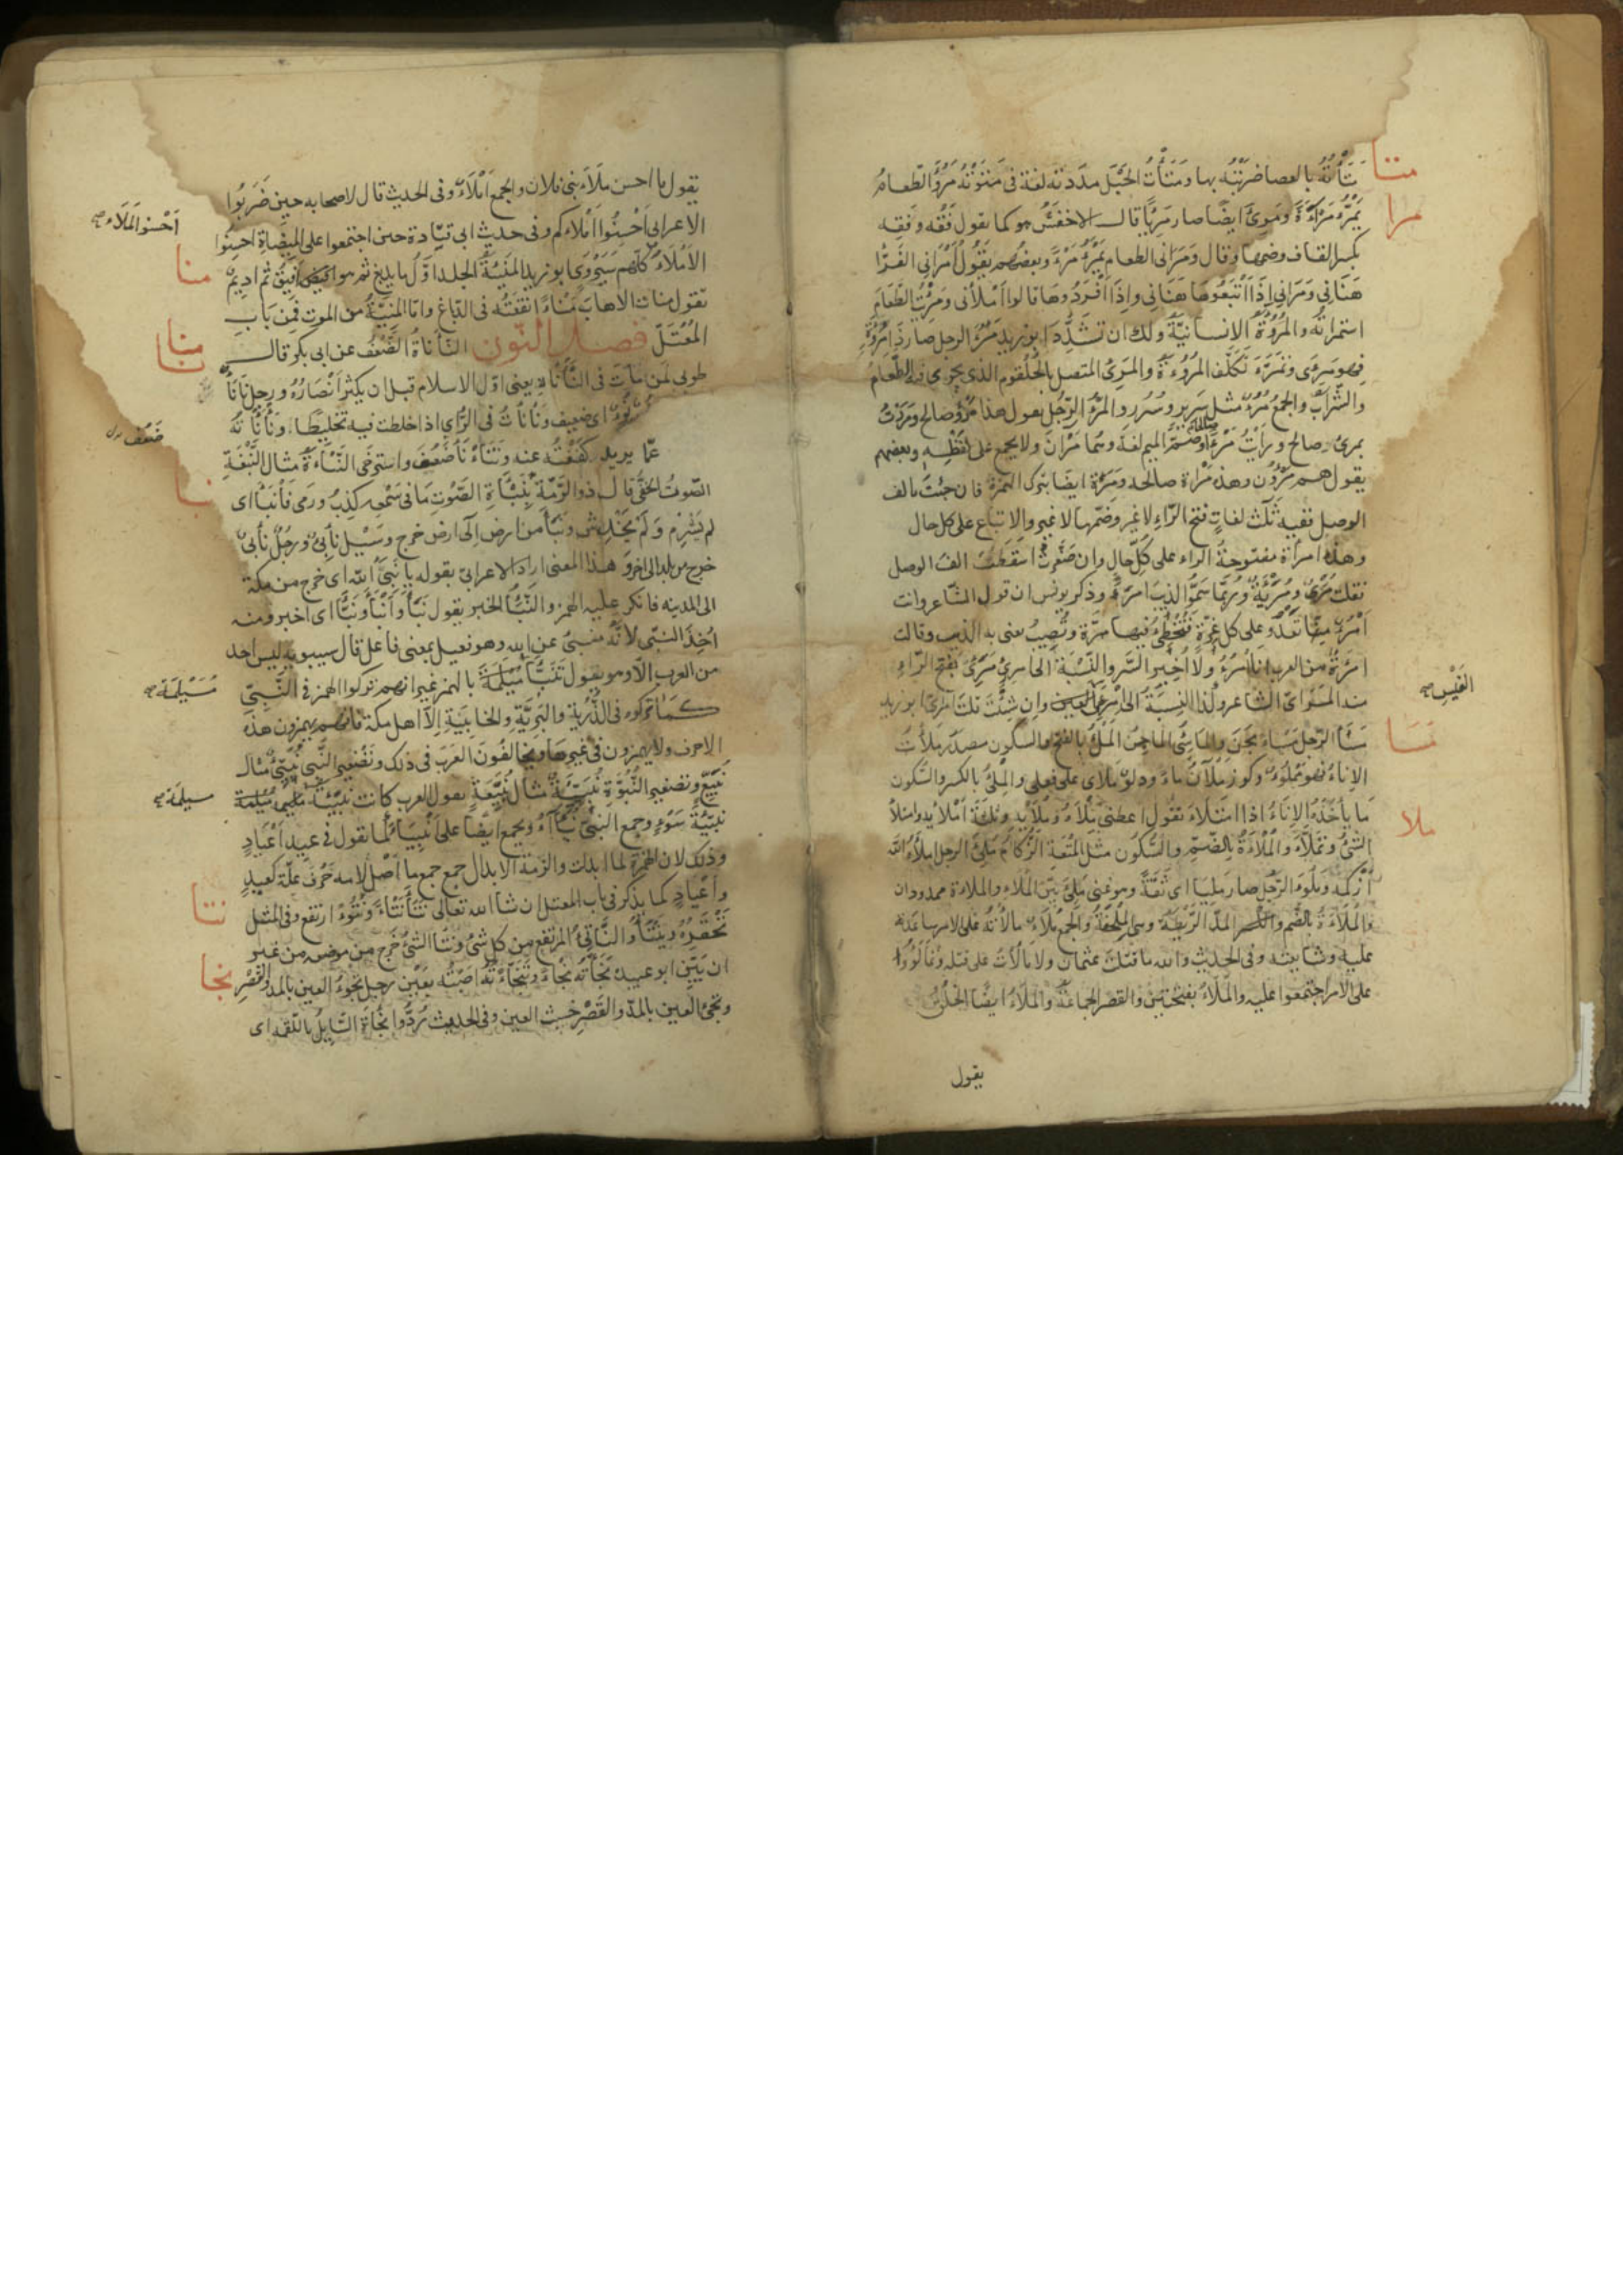 متأ
مَتَأْتُهُ بالعصا ضربْتُه بها ومَتَأْتُ الحَبْل مددته لغة فى مَتَوْتُهُ مَرُؤَ الطّعامُ
مرأ
يَمْرُؤُ مَرَآءَةً ومَرِئَ ايضًا صار مَرِيًّا قال الاخفَشُ هو كما تقول فَقُه وفَقِه
بكسر القاف وضمها وقال ومَرَأنى الطعام يَمْرَأُ مَرْءً وبعضهم يَقُولُ أَمْرَأَنِى الفَرّا
هَنَأنِى ومَرَأنِى اذَا أَتْبَعُوهَا هَنَأنِى واِذَا أفْرَدُوهَا قالوا أَمْرَأنى ومَرِئْتُ الطَّعَامَ
استمرأتُه والمُرُوْءَةُ الانسانيّةُ ولك ان تشَدِّدَ ابو زيد مَرُءَ الرجل صار ذَا مُرُوْءَةٍ
فهو مَرِىءٌ وتَمَرَّءَ تَكَلَّفَ المُرُوْءَةَ والمَرِىءُ المتصل بالحُلْقوم الذى يجرى فيه الطَّعَامُ
والشّرَابُ والجمعُ مُرُءٌ مثل سَرِير وسُرُر والمَرْءُ الرّجُل يقول هذا مَرْءٌ صالح ومررْتُ
بمرءٍ صالح ورأيْتُ مَرْءًا صالحًا وضمّةُ الميم لغة وهما مَرْآنِ ولا يجمع على لَفْظِهِ وبعضهم
يقول هم مَرْؤُنَ وهذه مَرْأة صالحة ومَرَةٌ ايضا بترك الهَمْزة فان جئتَ بالف
الوصل ففيه ثَلٰث لغاتٍ فتحُ الرّاءِ لا غير وضمّها لا غير والاِتْباع على كلّ حال
وهذه امرأة مفتوحةُ الراء على كُلّ حالٍ وان صَغّرتَ اسْقَطْتَ الفَ الوصل
فقلتَ مُرَىْءٌ ومُرَيْئَةٌ ورُبَّمَا سَمَّوُا الذِيبَ امْرَءً وذكر يونس ان قول الشاعر وانت
امْرُؤٌ تعْدُو على كل غِرّةٍ فتُخْطِئُ فيها مَرّةً وتُصِيبُ يعنى به الذيب وقالت
امرَءةٌ من العرب انا امْرُؤٌ ولَا أُخْبِرُ السِّر والنّسْبَةُ الى امرئٍ مَرَئِىٌّ بفَتحِ الرّاءِ
ومنه المَرَئى الشاعر وكذا النِسْبَةُ الى امْرئ القيس وان شِئْتَ قلتَ امْرِئىّ ابو زيد
القَيْسِ صح
مسأ
مَسَأَ الرّجل مَسْأً مجَنَ والماسِئُ الماجِنُ المَلْءُ بالفَتْح والسكون مصدَر مَلأْتُ
الاِناءَ فهو مَمْلُوْءٌ وكوز مَلْآنُ ماءً ودلوٌ مَلْأَى على فعلى والمِلْءُ بالكسر والسّكون
ملأ
مَا يأخذُهُ الاِنَاءُ اذا امتَلَاءَ تقُول أعطنى مِلْأَهُ ومِلْأَيْه وثلثة أَمْلَائه وامتلأ
الشئُ وتمَلَّأَ والمُلْأَةُ بالضّمِ والسُّكُون مثل المُتْعَة الزُّكام مُلِئَ الرجل وأَمْلَأَهُ اللّٰه
أزْكمَه ومَلُوءَ الرَّجُل صار مَلِيئا اى ثِقَةً وهو غنى مَلِىءٌ بَيّنُ المَلَاءِ والمَلَاءة ممدودان
والمُلَاءَةُ بالضَّم والمد الرَّيْطَةُ وهى المِلْحفَةُ والجمعُ مُلَاءٌ مالأتُهُ على الامر ساعدته
عليه وشايعته وفى الحديث والله ما قتلتُ عثمان ولا مالأتُ على قتله وتَمَالَؤُوا
على الامر اجتمعوا عليه والمَلَأُ بفتحتين والقصر الجماعَةُ والمَلَأُ ايضًا الخُلُقُ
يقول
يقول ما احسن مَلَأَ بنى فلان والجمع أَمْلَاءٌ وفى الحديث قال لاصحابه حين ضَرَبُوا
الاعرابى أَحْسِنُوا أَمْلَاءَكم وفى حديث ابى قتادة حين اجتمعوا على المِيضَاةِ احسِنُوا
أَحْسِنُوا المَلَاءَ صح
الأَمْلَاءَ كلّكم سَيَرْوَى ابو زيد المَنِيْئَةُ الجلد اَوّلُ ما يدبغ ثم هو افيق ثم اديمٌ
منأ
تقول منأت الاهابَ مَنْأً انقَعْتُه فى الدّباغ وامّا المَنِيَّةُ من الموت فَمِن بَابِ
المُعْتَلّ فصل النّون النّأْنأةُ الضَّعْفُ عن ابى بكر قال
نأنأ
طوبى لمَن ماتَ فى النَّأْنَأَةِ يعنى اوّل الاسلام قبل ان يكثرَ أَنْصَارُهُ ورجل نَأْنَأٌ
اى ضعيف ونَأْنَأْتُ فى الرَّأى اذا خلطت فيه تخليطا ونأْنأتهُ
ضَعُفَ
عمّا يريد كَفَفْتُه عنه وتَنَأْنَأَ ضَعُف واستَرخَى النَّبْأَةُ مثال النَّبْغَةِ
نبأ
الصّوتُ الخفىُّ قال ذو الرّمّة بِنَبْأَةِ الصَّوْتِ مَا فى سَمْعِه كذِبُ ورَمى فَأَنْبَأَ اى
لم يَشْرِم ولَم يَخْدِش ونَبَأَ من ارض اِلٰى ارض خرج وسَيْل نَابِئٌ ورجُلٌ نابِئٌ
خرج من بلد الى اخرَ وهذا المعنى اراد الاعرابىّ بقوله يا نَبِىءَ اللّٰه اى خرج من مكة
الى المدينه فانكر عليه الهمز والنّبَأُ الخبر يقول نَبَأَ وأَنْبَأَ ونَبَّأَ اى اخبر ومنه
أُخِذَ النبّىءُ لانّهُ مُنْبِئ عن الله وهو فعيل بمعنى فاعل قال سيبويه ليس احد
من العرب الّا وهو يقول تَنَبَّأَ مُسَيْلِمَةُ بالهمز غير انهم تركوا الهمز فى النَّبِىّ
مُسَيْلِمَة صح
كَمَا تَرَكوه فى الذُّرّيّة والبَرِيّةِ والخَابِيَةِ اِلّا اهل مكة فانهم يهمزون هذه
الاحرف ولا يهمزون فى غيرِهَا ويخالفُونَ العَرَبَ فى ذلك وتَصْغير النَّبِىّ نُبَيِّئٌ مثال
نُبَيِّعٍ وتصغير النُّبُوّة نُبَيِّئَةٌ مثال نُبَيِّعَةٍ تقول العرب كانت نُبَيِّئَةُ مُسَيْلِمَةَ
مسيلمَة صح
نُبَيِّئَةُ سَوْءٍ وجمع النبىّ نُبَآءُ ويجمع ايضًا على أَنْبِيَاءَ كما تقول فى عيد اعْيَادٍ
وذلك لان الهَمْزة لما ابدلت والزمت الابدال جمع جمع ما أَصْل لامه حَرْفُ علّة كعيد
وأَعْيَادٍ كما يذكر فى باب المعتل ان شاء الله تعالى نَتَأَ نَتْأً ونُتُوءًا ارتفع وفى المثل
نتأ
تَحْقِرُهُ ويَنْتَأُ والنَّاتِئُ المرتفع من كل شئ ونَتَأَ الشئُ خَرَج من موضعه من غير
ان يَبِين ابو عبيد نَجَأْتُه نَجْأَةً وتَنَجَّأْتُهُ اصَبْتُه بعَيْن رجل نجُوءُ العين بالمد والقَصْرِ
نجأ
ونَجِئُ العين بالمدّ والقَصْرِ خبيث العين وفى الحديث رُدُّوا نَجْأَةَ السَّايِلُ باللّقمه اى